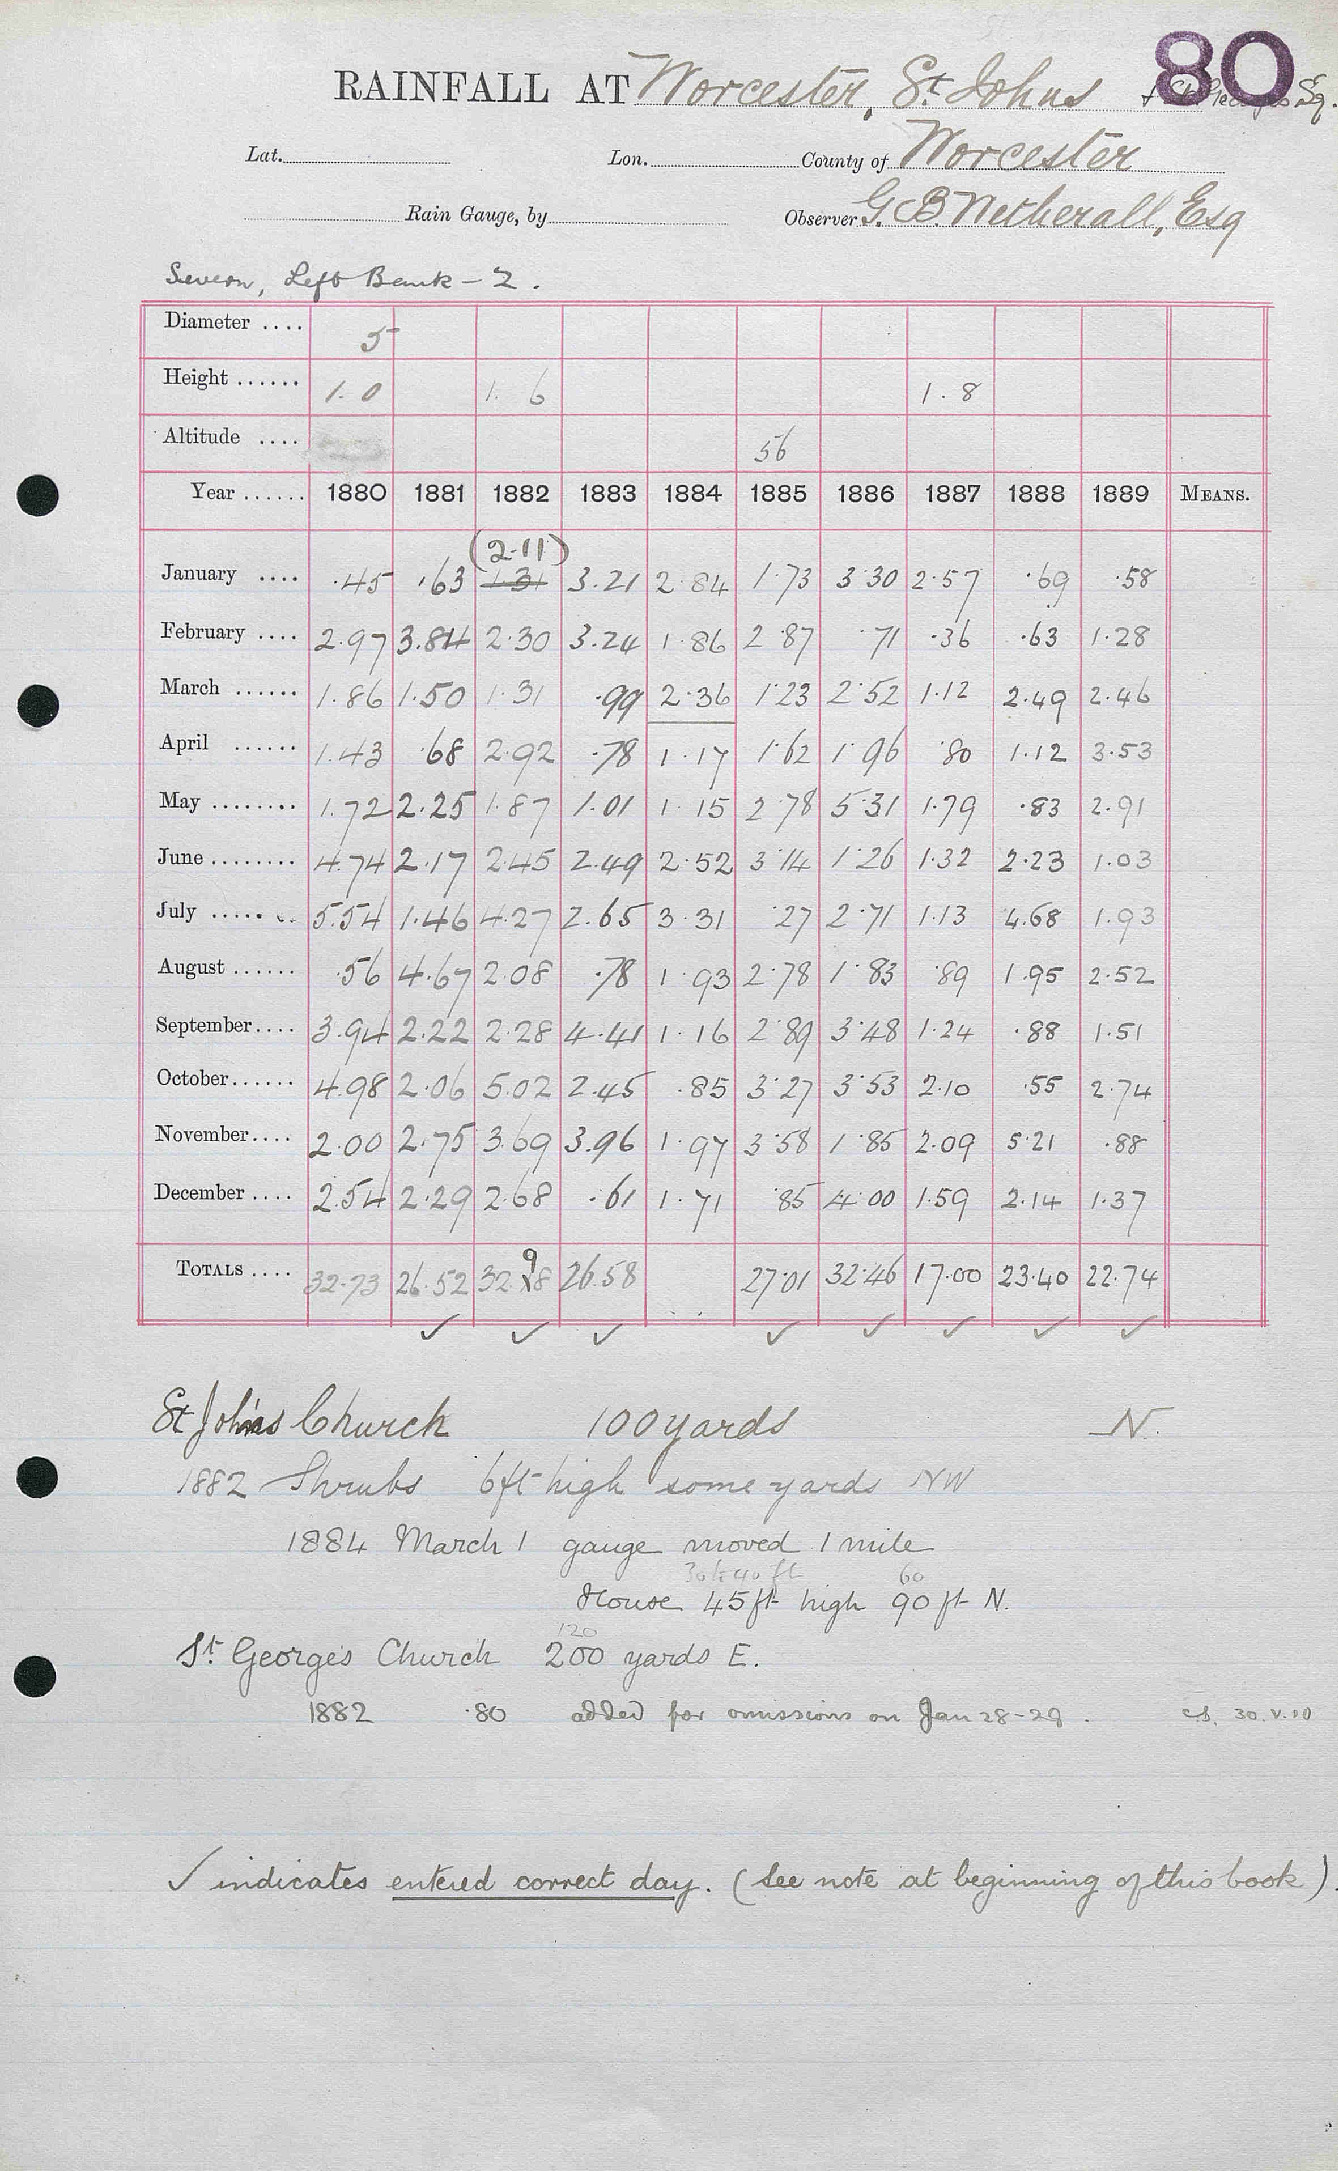 80
RAINFALL AT Worcester, St. Johns + St Georges Sq.
Lat. Lon. County of Worcester
Rain Gauge, by Observer G. B. Netherall, Esq
Severn, Left Bank - 2.
Diameter .... 5
Height ...... 1.0 1. 6 1.8
Altitude .... 56
Year ...... 1880 1881 1882 1883 1884 1885 1886 1887 1888 1889 MEANS.
(2.11)
January .... .45 .63 1.31 3.21 2.84 1.73 3.30 2.57 .69 .58
February .... 2.97 3.84 2.30 3.24 1.86 2.87 .71 .36 .63 1.28
March ...... 1.86 1.50 1.31 .99 2.36 1.23 2.52 1.12 2.49 2.46
April ...... 1.43 .68 2.92 .78 1.17 1.62 1.96 .80 1.12 3.53
May ........ 1.72 2.25 1.87 1.01 1.15 2.78 5.31 1.79 .83 2.91
June ........ 4.74 2.17 2.45 2.49 2.52 3.14 1.26 1.32 2.23 1.03
July ........ 5.54 1.46 4.27 2.65 3.31 .27 2.71 1.13 4.68 1.93
August ...... .56 4.67 2.08 .78 1.93 2.78 1.83 .89 1.95 2.52
September.... 3.94 2.22 2.28 4.41 1.16 2.89 3.48 1.24 .88 1.51
October...... 4.98 2.06 5.02 2.45 .85 3.27 3.53 2.10 .55 2.74
November.... 2.00 2.75 3.69 3.96 1.97 3.58 1.85 2.09 5.21 .88
December .... 2.54 2.29 2.68 .61 1.71 .85 4.00 1.59 2.14 1.37
9
TOTALS .... 32.73 26.52 32.18 26.58 27.01 32.46 17.00 23.40 22.74
✓ ✓ ✓ ✓ ✓ ✓ ✓ ✓
St Johns Church 100 yards N.
1882 Shrubs 6ft high some yards NW
1884 March 1 gauge moved 1 mile
30 to 40 ft 60
House 45 ft high 90 ft N.
120
St. George's Church 200 yards E.
1882 .80 added for omissions on Jan 28-29. 30.V.10
✓ indicates entered correct day. (See note at beginning of this book).